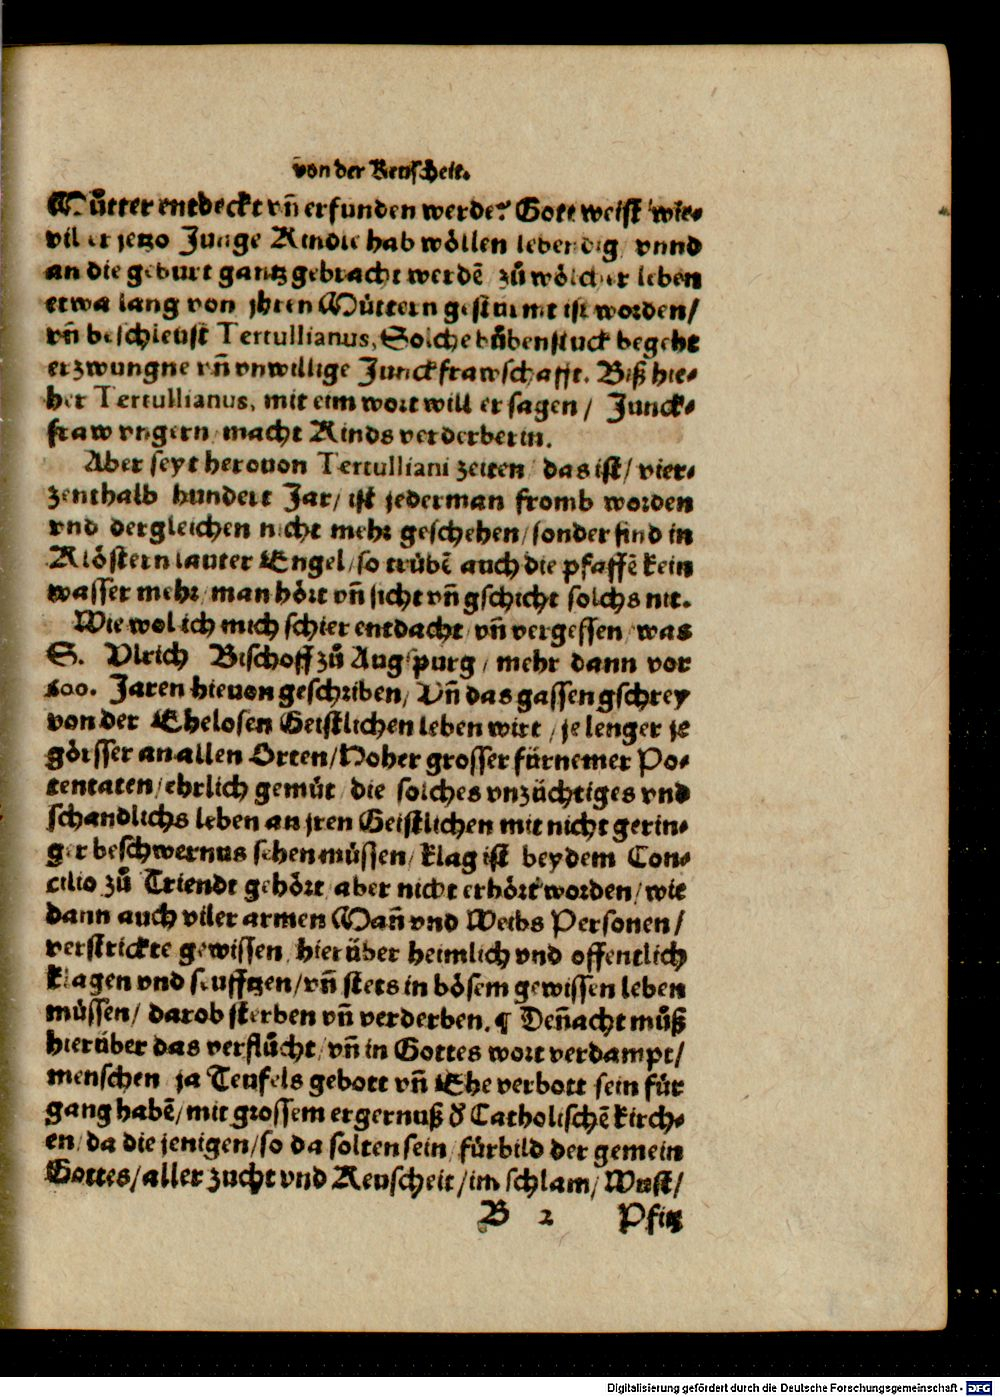 von der Keuscheit.
Můtter entdeckt vñ erfunden werde? Gott weist wie⸗
vil er jetzo Junge Kinder hab wöllen lebendig vnnd
an die geburt gantz gebracht werdē zů wölcher leben
etwa lang von jhren Můttern gestürmt ist worden/
vñ beschleust Tertullianus, Solche bůbenstuck begeht
erzwungne vñ vnwillige Junckfrawschafft. Biß hie⸗
her Tertullianus, mit eim wort will er sagen/ Junck⸗
fraw vngern macht Kinds verderberin.
Aber seyt herouon Tertulliani zeiten/ das ist/ vier⸗
zenthalb hundert Jar/ ist jederman fromb worden
vnd dergleichen nicht mehr geschehen/ sonder sind in
Klöstern lauter Engel/ so trübē auch die pfaffē kein
wasser mehr/ man hört vñ sicht vñ gschicht solchs nit.
Wie wol ich mich schier entdacht/ vñ vergessen/ was
S. Vlrich Bischoff zů Augspurg/ mehr dann vor
600. Jaren hieuon geschriben/ Vñ das gassengschrey
von der Ehelosen Geistlichen leben wirt/ je lenger je
görsser an allen Orten/ Hoher grosser fürnemer Po⸗
tentaten/ ehrlich gemüt/ die solches vnzüchtiges vnd
schandlichs leben an jren Geistlichen mit nicht gerin⸗
ger beschwernus sehen müssen/ klag ist bey dem Con⸗
cilio zů Triendt gehört/ aber nicht erhört worden/ wie
dann auch viler armen Mañ vnd Weibs Personen/
verstrickte gewissen hierüber heimlich vnd offentlich
klagen vnd seufftzen/ vñ stets in bösem gewissen leben
müssen/ darob sterben vñ verderben. ¶ Deñacht můß
hierüber das verflůcht/ vñ in Gottes wort verdampt/
menschen ja Teufels gebott vñ Ehe verbott sein für
gang habē/ mit grossem ergernuß d̕ Catholischē kirch⸗
en/ da die jenigen/ so da solten sein fürbild der gemein
Gottes/ aller zucht vnd Keuscheit/ im schlam/ Wust/
B 2 Pfitz
Digitalisierung gefördert durch die Deutsche Forschungsgemeinschaft - DFG